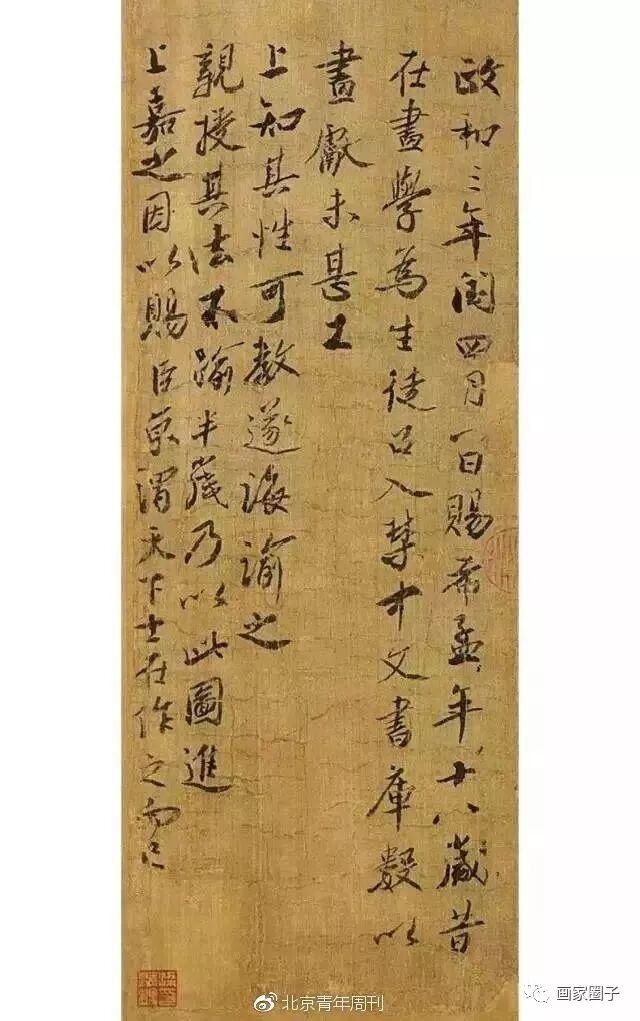 政和三年閏四月一日賜希孟年十八歲昔
在畫學為生徒召入禁中文書庫數以
畫獻未甚工
上知其性可教遂誨諭之
親授其法不踰半歲乃以此圖進
上嘉之因以賜臣京謂天下士在作之而已
北京青年周刊
画家圈子